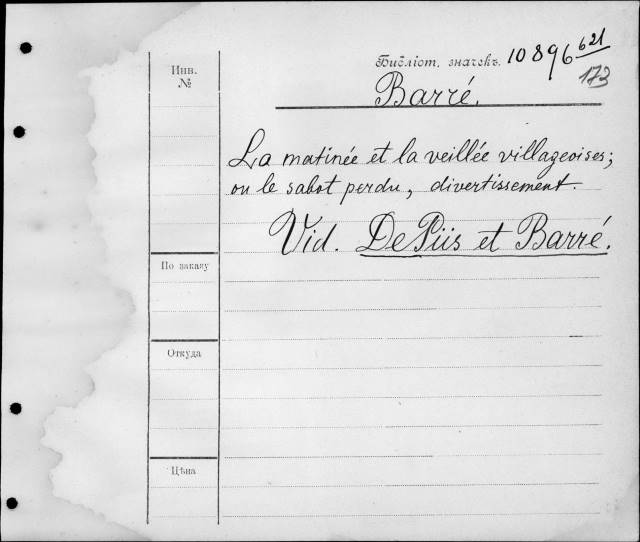 Инв. №
Библіот. значекъ. 10896 621
173
Barré.
La matinée et la veillée villageoises;
ou le sabot perdu, divertissement.
Vid. De Piis et Barré.
По заказу
Откуда
Цѣна